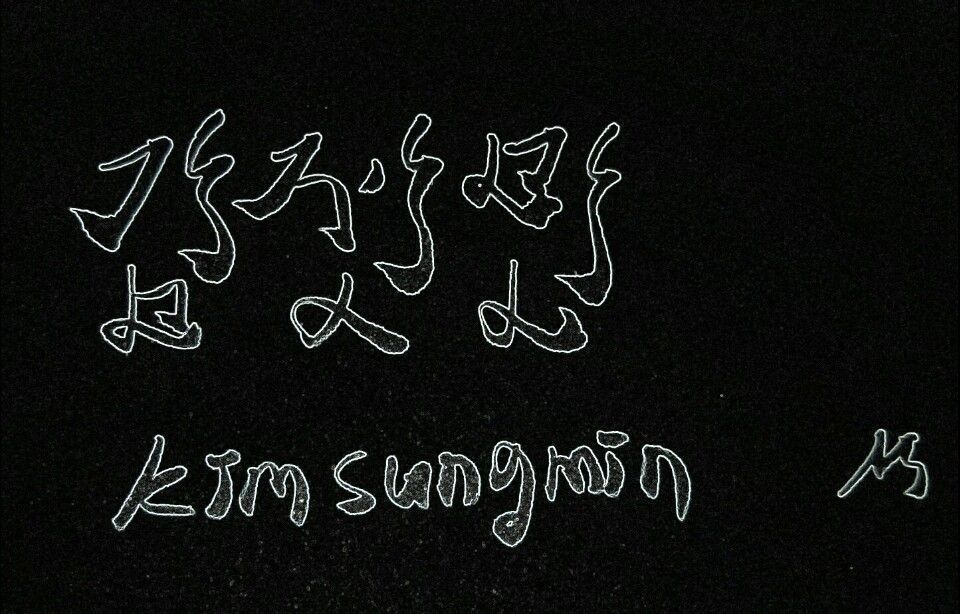 김성민
kim sungmin